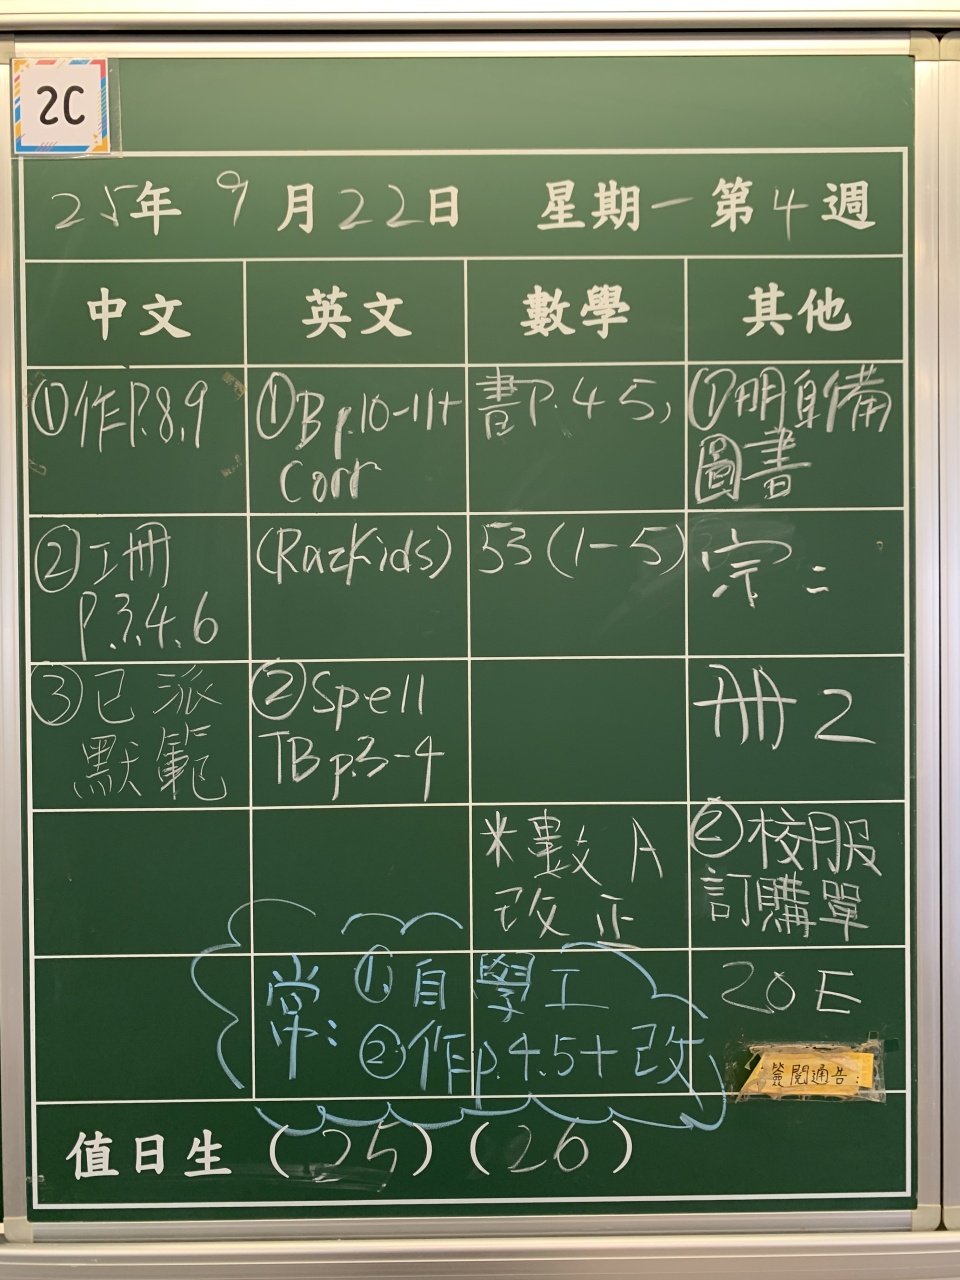 2C
25年 9月22日 星期一 第4週
中文 英文 數學 其他
①作P.8,9
②工冊
P.3.4.6
③已派
默範
①B p.10-11+
Corr
(RazKids)
②Spell
TB p.3-4
書P.45,
53(1-5)
*數A
改正
①明自備
圖書
宗:
冊2
②校服
訂購單
20E
簽閱通告:
常: ①自學工
②作p.4.5+改
值日生 (25) (26)